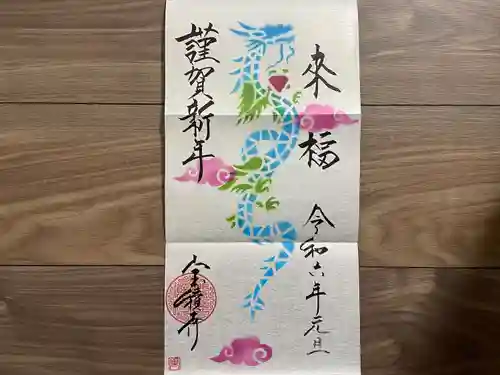 来福
令和六年元旦
謹賀新年
宝積寺